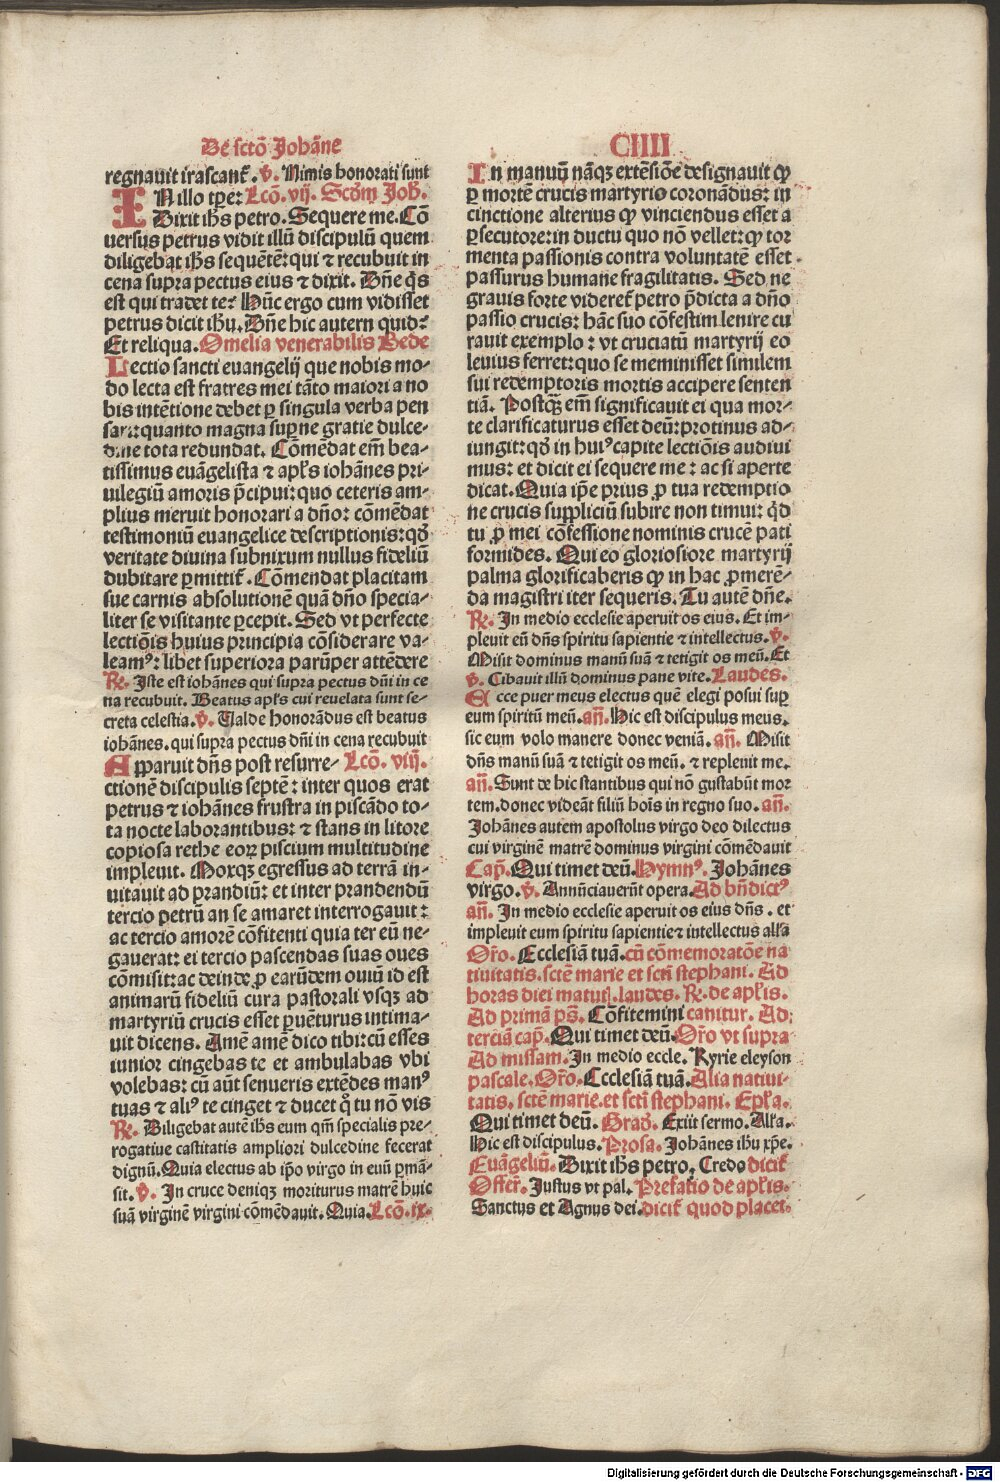 De sctō Johāne
CIIII
regnauit irascant᷑. ℣. Nimis honorati sunt
IN illo tpe: Lcō. vij. Scdm̄ Joh̄.
Dixit ih̄s petro. Sequere me. Cō
uersus petrus vidit illū discipulū quem
diligebat ih̄s sequētē: qui ⁊ recubuit in
cena supra pectus eius ⁊ dixit. Dn̄e q̇s
est qui tradet te? Hūc ergo cum vidisset
petrus dicit ih̄u. Dn̄e hic autem quid?
Et reliqua. Omelia venerabilis Bede
Lectio sancti euangelij que nobis mo-
do lecta est fratres mei tāto maiori a no
bis intētione debet ꝑ singula verba pen
sari: quanto magna supꝑne gratie dulce-
dine tota redundat. Cōmēdat em̄ bea-
tissimus euāgelista ⁊ apl̄s iohānes pri-
uilegiū amoris p̄cipui: quo ceteris am-
plius meruit honorari a dn̄o: cōmēdat
testimoniū euangelice descriptionis: qd̄
veritate diuina subnixum nullus fideliū
dubitare ꝑmittit᷑. Cōmendat placitam
sue carnis absolutionē quā dn̄o specia-
liter se visitante ꝑcepit. Sed vt perfecte
lectiōis huius principia cōsiderare va-
leamꝰ: libet superiora parūper attēdere
℟. Iste est iohānes qui supra pectus dn̄i in ce
na recubuit. Beatus apl̄s cui reuelata sunt se-
creta celestia. ℣. Valde honorādus est beatus
iohānes. qui supra pectus dn̄i in cena recubuit
Apparuit dn̄s post resurre- Lcō. viij.
ctionē discipulis septē: inter quos erat
petrus ⁊ iohānes frustra in piscādo to-
ta nocte laborantibus: ⁊ stans in litore
copiosa rethe eoꝝ piscium multitudine
impleuit. Moxqꝫ egressus ad terrā in-
uitauit ad prandiū: et inter prandendū
tercio petrū an se amaret interrogauit:
ac tercio amorē cōfitenti quia ter eū ne-
gauerat: ei tercio pascendas suas oues
cōmisit: ac deinde ꝓ earūdem ouiū id est
animarū fideliū cura pastorali vsqꝫ ad
martyriū crucis esset ꝑuēturus intima-
uit dicens. Amē amē dico tibi: cū esses
iunior cingebas te et ambulabas vbi
volebas: cū aūt senueris extēdes manꝰ
tuas ⁊ aliꝰ te cinget ⁊ ducet qͦ tu nō vis
℟. Diligebat autē ih̄s eum qm̄ specialis pre-
rogatiue castitatis ampliori dulcedine fecerat
dignū. Quia electus ab ip̄o virgo in euū ꝑmā-
sit. ℣. In cruce deniqꝫ moriturus matrē huic
suā virginē virgini cōmēdauit. Quia. Lcō. ix.
In manuū nāqꝫ extēsiōe designauit ꝙ
ꝑ mortē crucis martyrio coronādus: in
cinctione alterius ꝙ vinciendus esset a
ꝑsecutore: in ductu quo nō vellet: ꝙ tor
menta passionis contra voluntatē esset
passurus humane fragilitatis. Sed ne
grauis forte videret᷑ petro p̄dicta a dn̄o
passio crucis: hāc suo cōfestim lenire cu
rauit exemplo: vt cruciatū martyrij eo
leuius ferret: quo se meminisset similem
sui redemptoris mortis accipere senten
tiā. Postqꝫ̄ em̄ significauit ei qua mor-
te clarificaturus esset deū: protinus ad-
iungit: qd̄ in huiꝰ capite lectiōis audiui
mus: et dicit ei sequere me: ac si aperte
dicat. Quia ip̄e prius ꝓ tua redemptio
ne crucis suppliciū subire non timui: q̇d
tu ꝓ mei cōfessione nominis crucē pati
formides. Qui eo gloriosiore martyrij
palma glorificaberis ꝙ in hac ꝓmerē-
da magistri iter sequeris. Tu autē dn̄e.
℟. In medio ecclesie aperuit os eius. Et im-
pleuit eū dn̄s spiritu sapientie ⁊ intellectus. ℣.
Misit dominus manū suā ⁊ tetigit os meū. Et
℣. Cibauit illū dominus pane vite. Laudes.
Ecce puer meus electus quē elegi posui suꝑ
eum spiritū meū. an̄. Hic est discipulus meus.
sic eum volo manere donec veniā. an̄. Misit
dn̄s manū suā ⁊ tetigit os meū. ⁊ repleuit me.
an̄. Sunt de hic stantibus qui nō gustabūt mor
tem. donec videāt filiū hois̄ in regno suo. an̄.
Johānes autem apostolus virgo deo dilectus
cui virginē matrē dominus virgini cōmēdauit
Cap̄. Qui timet deū. Hymnꝰ. Johānes
virgo. ℣. Annūciauerūt opera. Ad bn̄dictꝰ
an̄. In medio ecclesie aperuit os eius dn̄s. et
impleuit eum spiritu sapientie ⁊ intellectus all̄a
Or̄o. Ecclesiā tuā. cū cōmemoratōe na
tiuitatis. sctē marie et sctī stephani. Ad
horas diei matut᷑. laudes. ℟. de apl̄is.
Ad primā ps̄. Cōfitemini canitur. Ad
terciā cap̄. Qui timet deū. Or̄o vt supra
Ad missam. In medio eccle. Kyrie eleyson
pascale. Or̄o. Ecclesiā tuā. Alia natiui-
tatis. sctē marie. et sctī stephani. Epl̄a.
Qui timet deū. Grad̄. Exiit sermo. All̄a.
Hic est discipulus. Prosa. Johānes ih̄u xp̄e.
Euāgeliū. Dixit ih̄s petro. Credo dicit᷑
Offer̄. Justus vt pal. Prefatio de apl̄is.
Sanctus et Agnus dei. dicit᷑ quod placet.
Digitalisierung gefördert durch die Deutsche Forschungsgemeinschaft - DFG